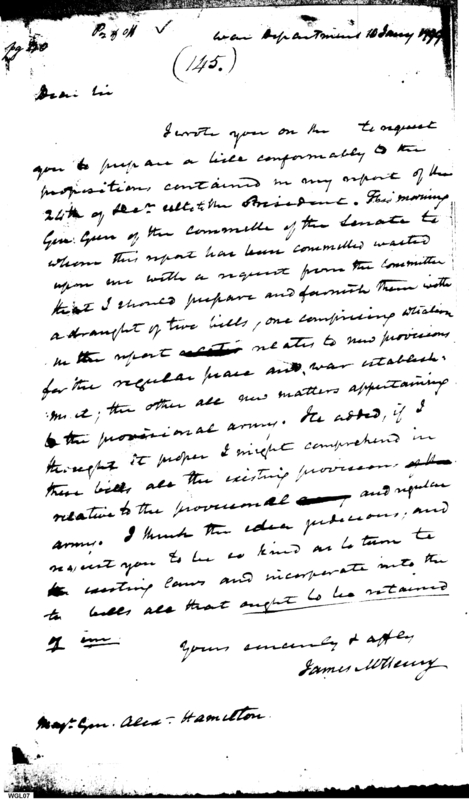 pg 220 P 2 of M War Department 10 Jany 1799
(145.)
Dear Sir
I wrote you on the to request
you to prepare a bill conformably to the
propositions contained in my report of the
24th of Decr ulto to the President. This morning
Gen. Gun of the committee of the Senate to
whom this report has been committed waited
upon me with a request from the Committee
that I should prepare and furnish them with
a draught of two bills, one comprising whatever
in the report relates to new provisions
for the regular peace and war establish-
ment; the other all new matters appertaining
to the provisional army. He added, if I
thought it proper I might comprehend in
these bills all the existing provisions
relative to the provisional and regular
army. I think the idea judicious, and
request you to be so kind as to turn to
the existing laws and incorporate into the
bills all that ought to be retained
of
Yours sincerely & affly
James McHenry
Majr. Gen. Alexr Hamilton
WGL07